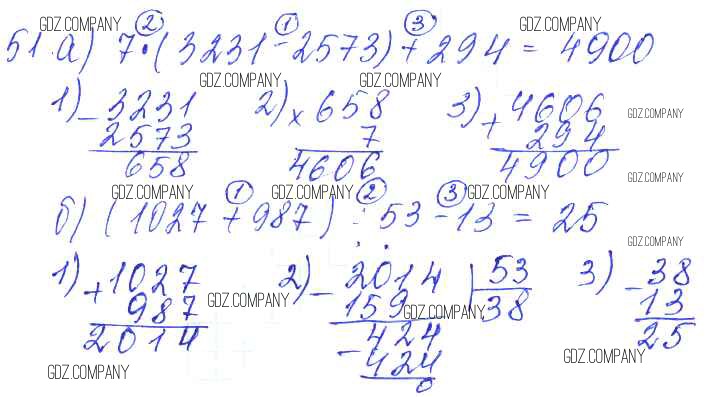 GDZ.COMPANY ② ① ③ GDZ.COMPANY
51. а) 7·(3231-2573)+294 = 4900
GDZ.COMPANY GDZ.COMPANY
1) - 3231 2) × 658 3) + 4606 GDZ.COMPANY
2573 7 294
658 4606 4900
GDZ.COMPANY GDZ.COMPANY GDZ.COMPANY GDZ.COMPANY
① ② ③
б) (1027 + 987) : 53 - 13 = 25
GDZ.COMPANY
1) + 1027 2) - 2014 | 53 3) - 38
987 GDZ.COMPANY 159 38 13
GDZ.COMPANY GDZ.COMPANY
2014 424 25
- 424 GDZ.COMPANY
GDZ.COMPANY 0